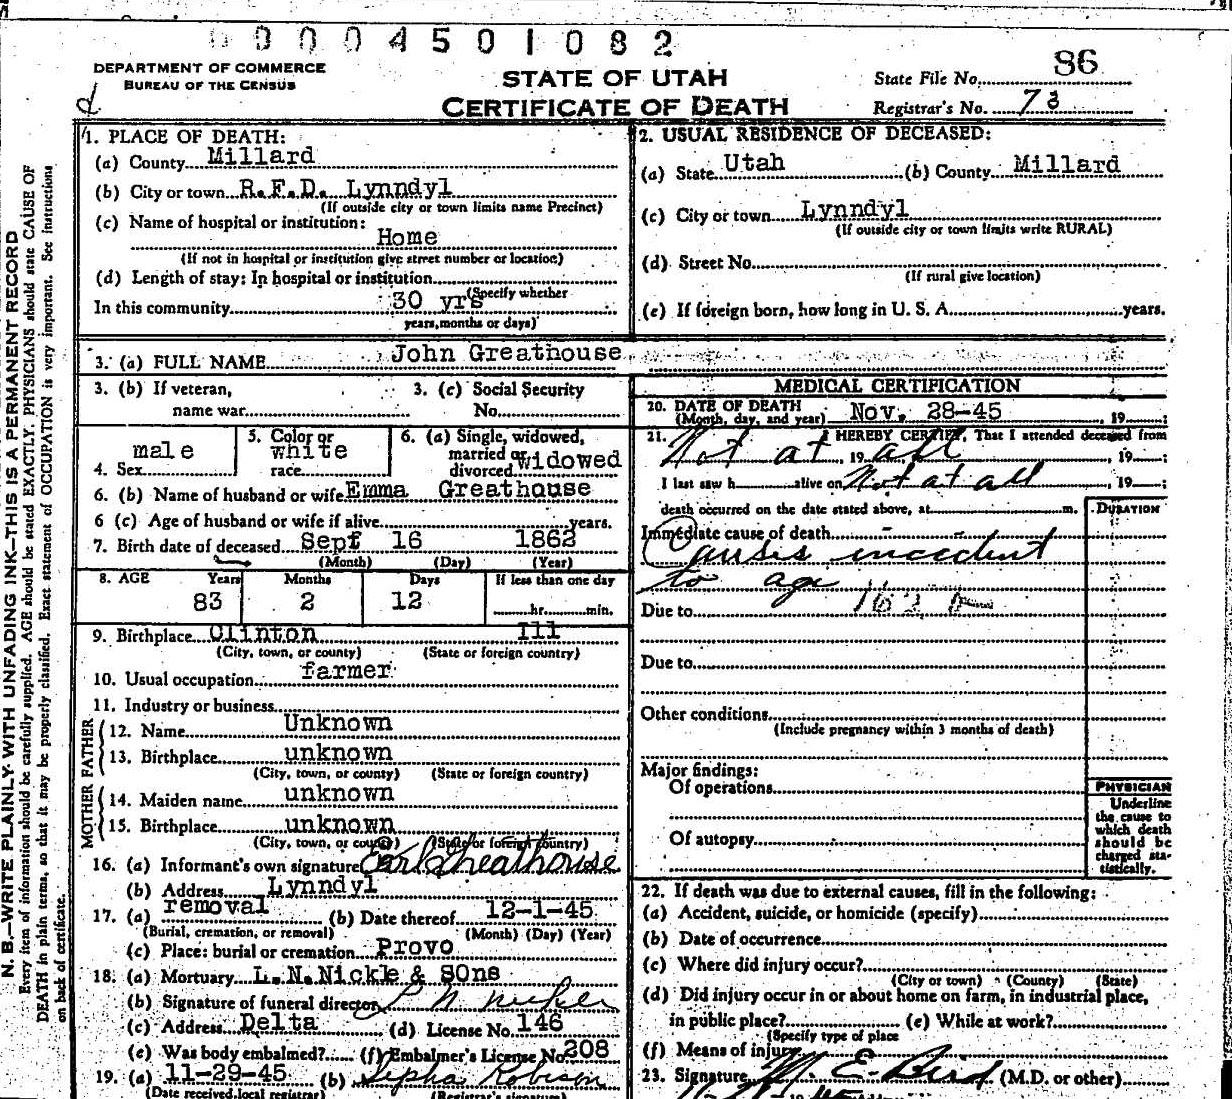 0 0 0 0 4 5 0 1 0 8 2
DEPARTMENT OF COMMERCE
BUREAU OF THE CENSUS
STATE OF UTAH
CERTIFICATE OF DEATH
State File No. 86
Registrar's No. 73
N. B.—WRITE PLAINLY WITH UNFADING INK—THIS IS A PERMANENT RECORD
Every item of information should be carefully supplied. AGE should be stated EXACTLY. PHYSICIANS should state CAUSE OF
DEATH in plain terms, so that it may be properly classified. Exact statement of OCCUPATION is very important. See instructions
on back of certificate.
1. PLACE OF DEATH:
(a) County Millard
(b) City or town R.F.D. Lynndyl
(If outside city or town limits name Precinct)
(c) Name of hospital or institution:
Home
(If not in hospital or institution give street number or location)
(d) Length of stay: In hospital or institution
(Specify whether
In this community 30 yrs
years, months or days)
2. USUAL RESIDENCE OF DECEASED:
(a) State Utah (b) County Millard
(c) City or town Lynndyl
(If outside city or town limits write RURAL)
(d) Street No.
(If rural give location)
(e) If foreign born, how long in U. S. A. years.
3. (a) FULL NAME John Greathouse
3. (b) If veteran,
name war
3. (c) Social Security
No.
4. Sex male
5. Color or
race white
6. (a) Single, widowed,
married or
divorced widowed
6. (b) Name of husband or wife Emma Greathouse
6 (c) Age of husband or wife if alive years.
7. Birth date of deceased Sept 16 1862
(Month) (Day) (Year)
8. AGE Years Months Days If less than one day
83 2 12 hr. min.
9. Birthplace Clinton Ill
(City, town, or county) (State or foreign country)
10. Usual occupation farmer
11. Industry or business
FATHER
12. Name Unknown
13. Birthplace unknown
(City, town, or county) (State or foreign country)
MOTHER
14. Maiden name unknown
15. Birthplace unknown
(City, town, or county) (State or foreign country)
16. (a) Informant's own signature Earl Greathouse
(b) Address Lynndyl
17. (a) removal (b) Date thereof 12-1-45
(Burial, cremation, or removal) (Month) (Day) (Year)
(c) Place: burial or cremation Provo
18. (a) Mortuary L.N.Nickle & SOns
(b) Signature of funeral director
(c) Address Delta (d) License No. 146
(e) Was body embalmed? (f) Embalmer's License No. 208
19. (a) 11-29-45 (b) Robison
(Date received local registrar) (Registrar's signature)
MEDICAL CERTIFICATION
20. DATE OF DEATH
(Month, day, and year) Nov. 28-45, 19 ;
21. I HEREBY CERTIFY, That I attended deceased from
Not at, 19 all, 19 ;
I last saw h alive on Not at all, 19 ;
death occurred on the date stated above, at m.
DURATION
Immediate cause of death
Causes incedent
to age
Due to 162
Due to
Other conditions
(Include pregnancy within 3 months of death)
Major findings:
Of operations
Of autopsy
PHYSICIAN
Underline
the cause to
which death
should be
charged sta-
tistically.
22. If death was due to external causes, fill in the following:
(a) Accident, suicide, or homicide (specify)
(b) Date of occurrence
(c) Where did injury occur?
(City or town) (County) (State)
(d) Did injury occur in or about home on farm, in industrial place,
in public place? (e) While at work?
(Specify type of place
(f) Means of injury
23. Signature M. E. Bird (M.D. or other)